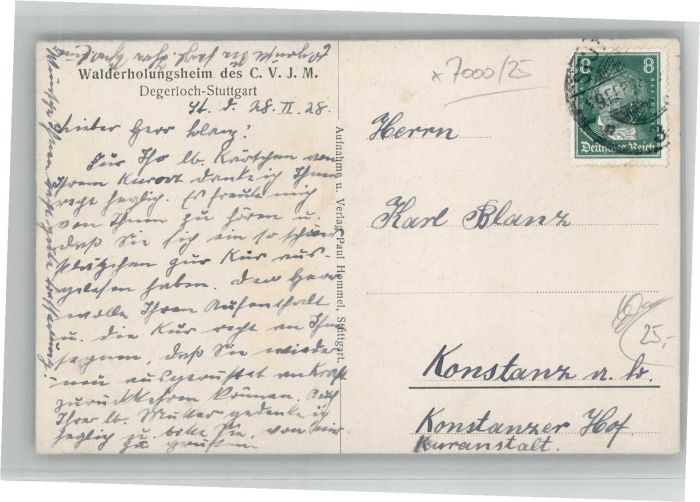 Walderholungsheim des C. V. J. M.
Degerloch-Stuttgart
St. d. 28. II 28.
Lieber Herr Blanz!
Für Ihr lb. Kärtchen von
Ihrem Kurort danke ich Ihnen
recht herzlich. Es freute mich
von Ihnen zu hören u.
daß Sie sich ein so schönes
Plätzchen zur Kur aus-
gelesen haben. Der Herr
wolle Ihren Aufenthalt
u. die Kur recht an Ihnen
segnen, daß Sie wieder
neu ausgerüstet an Kraft
zurückkehren können. Auch
Ihrer lb. Mutter gedenke ich
herzlich u. bitte Sie, von mir
zu grüßen
Aufnahme u. Verlag Paul Hommel, Stuttgart.
x 7000/25
Herrn
Karl Blanz
Konstanz a. B.
Konstanzer Hof
Kuranstalt.
25,-
8
8
Deutsches Reich